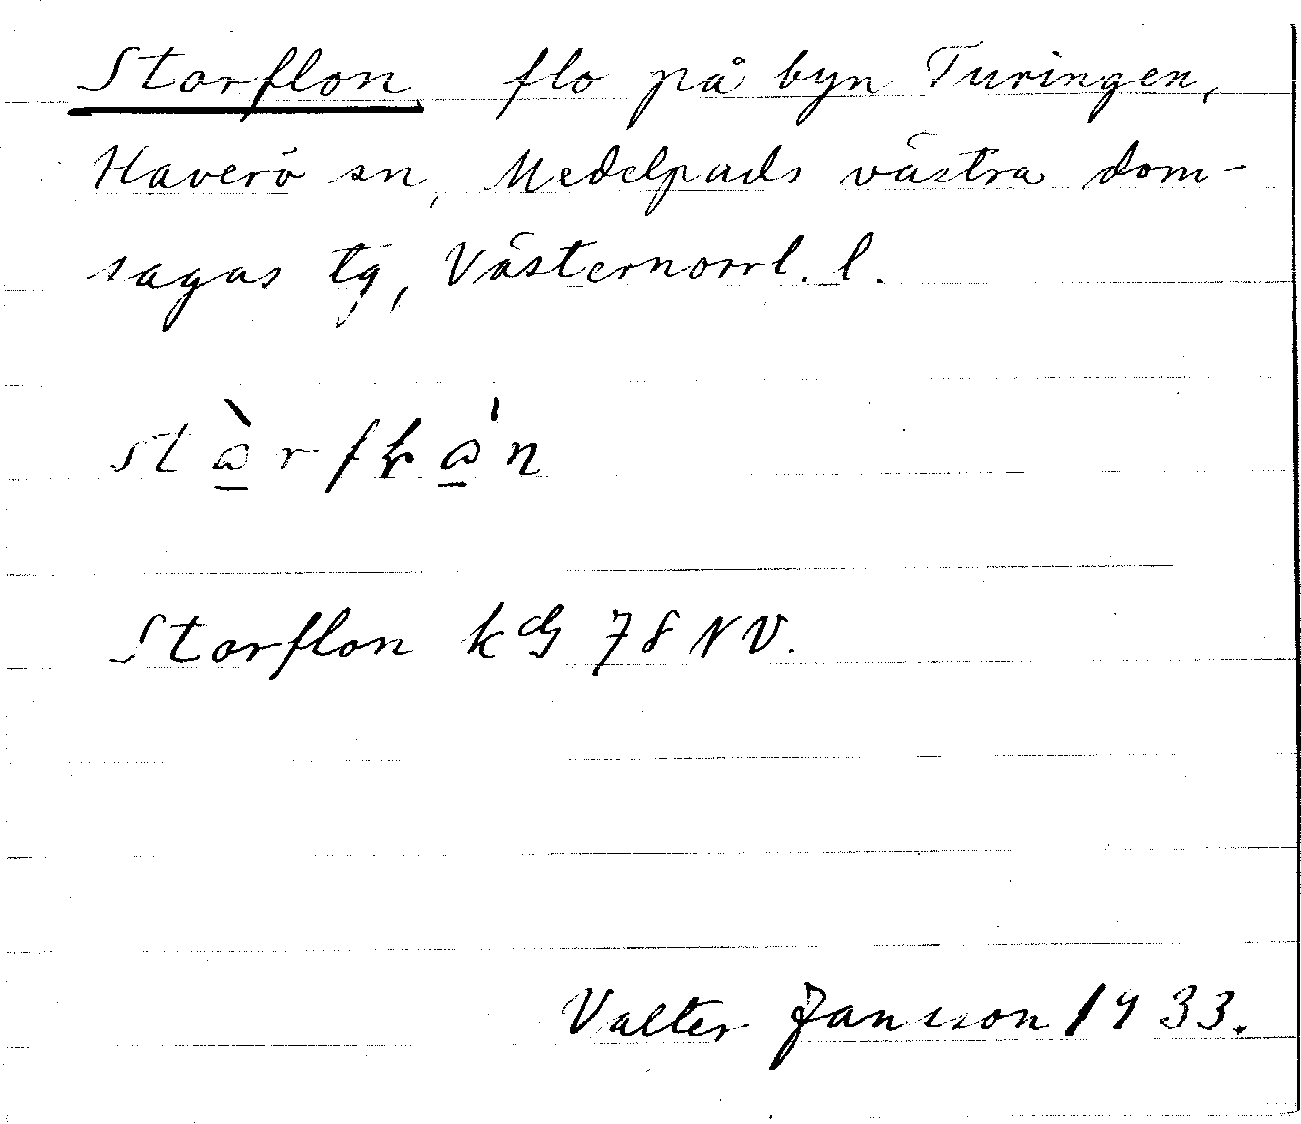 Storflon flo på byn Turingen,
Haverö sn, Medelpads västra dom-
sagas tg, Västernorrl. l.
Storflon k dG 78 NV.
Valter Jansson 1933.